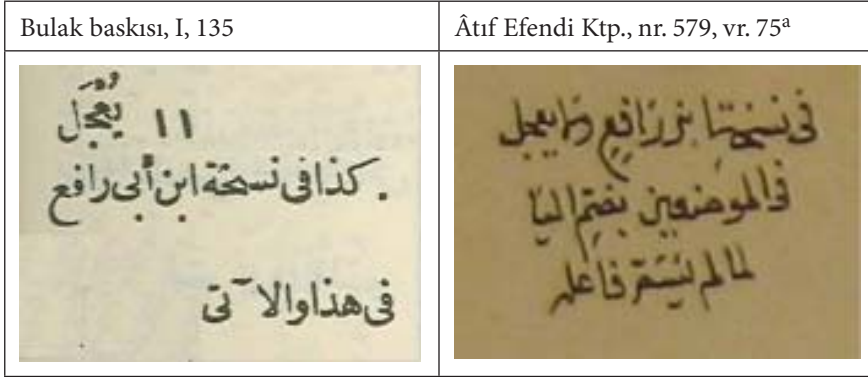 Bulak baskısı, I, 135
Âtıf Efendi Ktp., nr. 579, vr. 75ª
١١ يُعَجَّل
. كذا فى نسخة ابن أبى رافع
فى هذا والآتى
فى نسخة ابن رافع يعجل
فى الموضعين بضم اليا
لما لم يسم فاعله